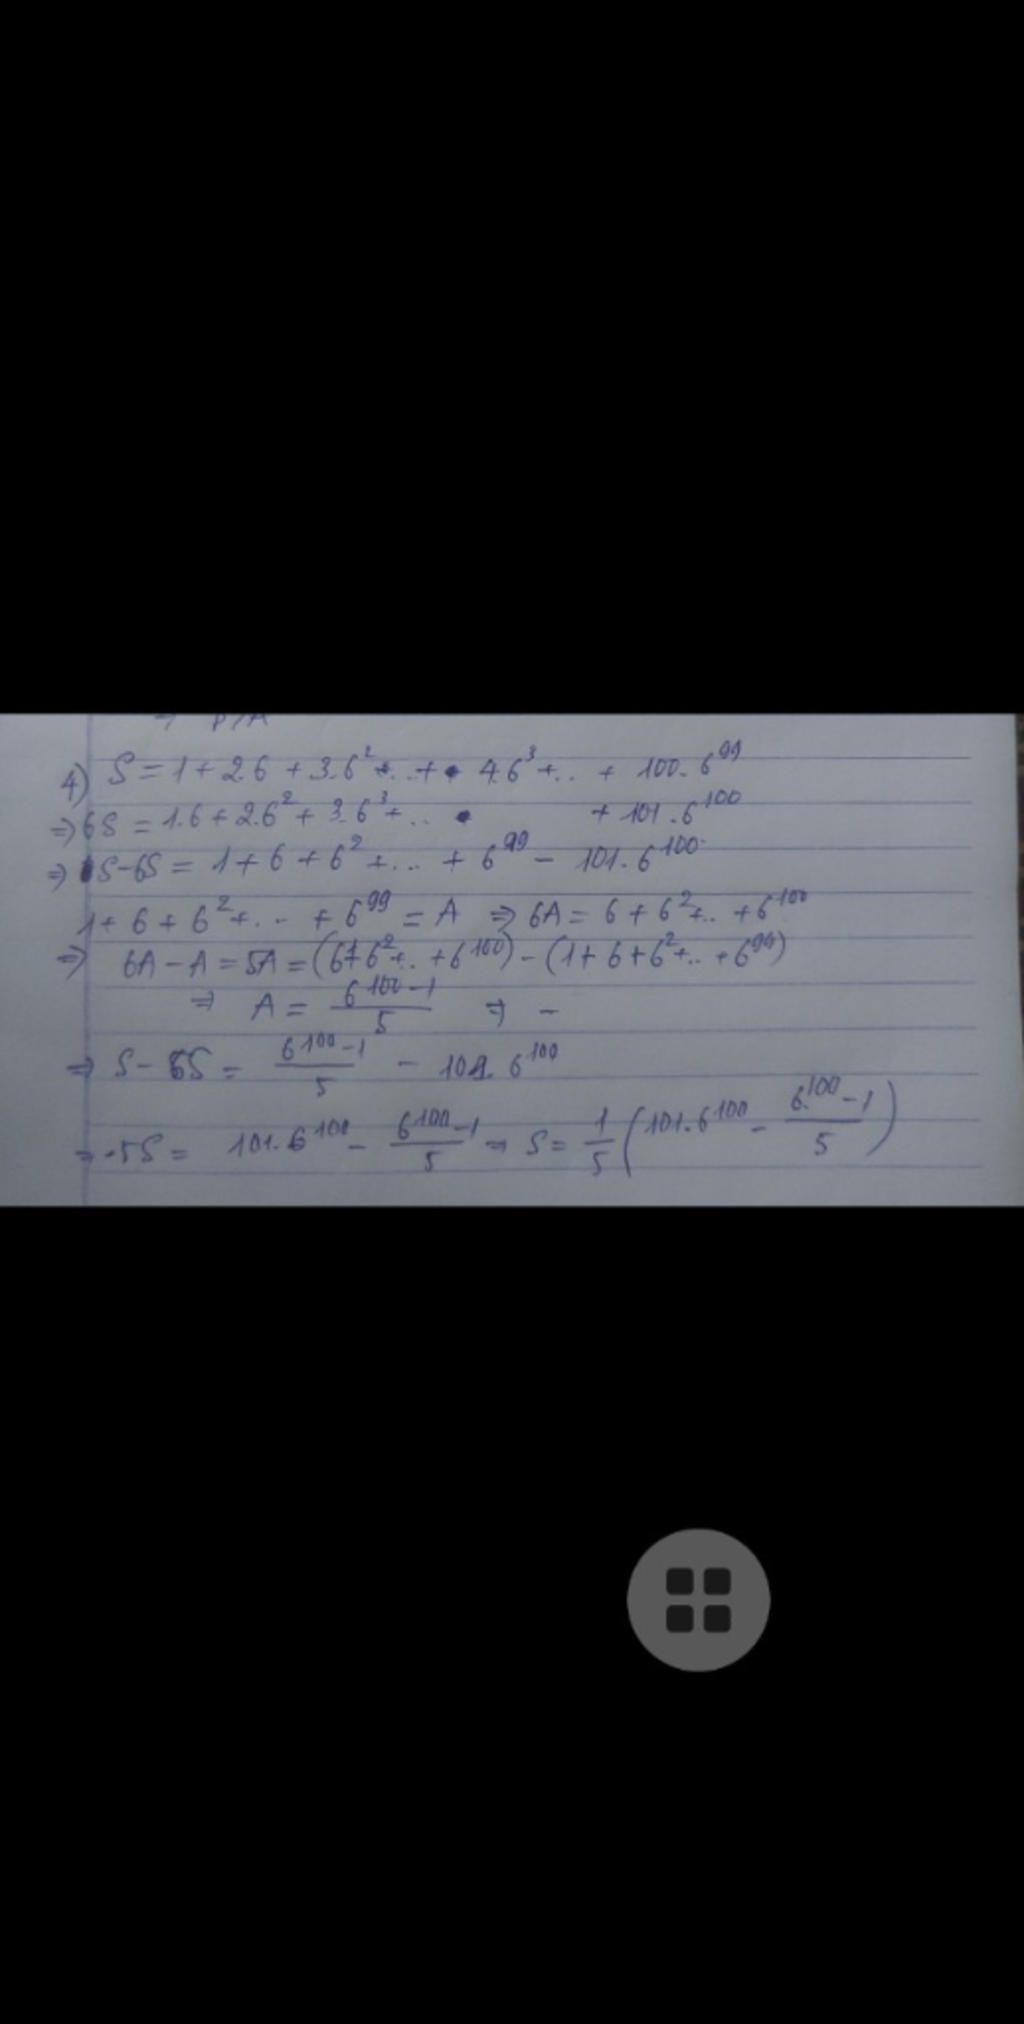 4) S = 1 + 2.6 + 3.6² + .. + 4.6³ + .. + 100.6⁹⁹
⇒ 6S = 1.6 + 2.6² + 3.6³ + .. + 101.6¹⁰⁰
⇒ S - 6S = 1 + 6 + 6² + ... + 6⁹⁹ - 101.6¹⁰⁰
1 + 6 + 6² + ... + 6⁹⁹ = A ⇒ 6A = 6 + 6² + .. + 6¹⁰⁰
⇒ 6A - A = 5A = (6 + 6² + .. + 6¹⁰⁰) - (1 + 6 + 6² + .. + 6⁹⁹)
⇒ A = (6¹⁰⁰ - 1)/5 ⇒ -
⇒ S - 6S = (6¹⁰⁰ - 1)/5 - 101.6¹⁰⁰
⇒ 5S = 101.6¹⁰⁰ - (6¹⁰⁰ - 1)/5 ⇒ S = 1/5 (101.6¹⁰⁰ - (6¹⁰⁰ - 1)/5)